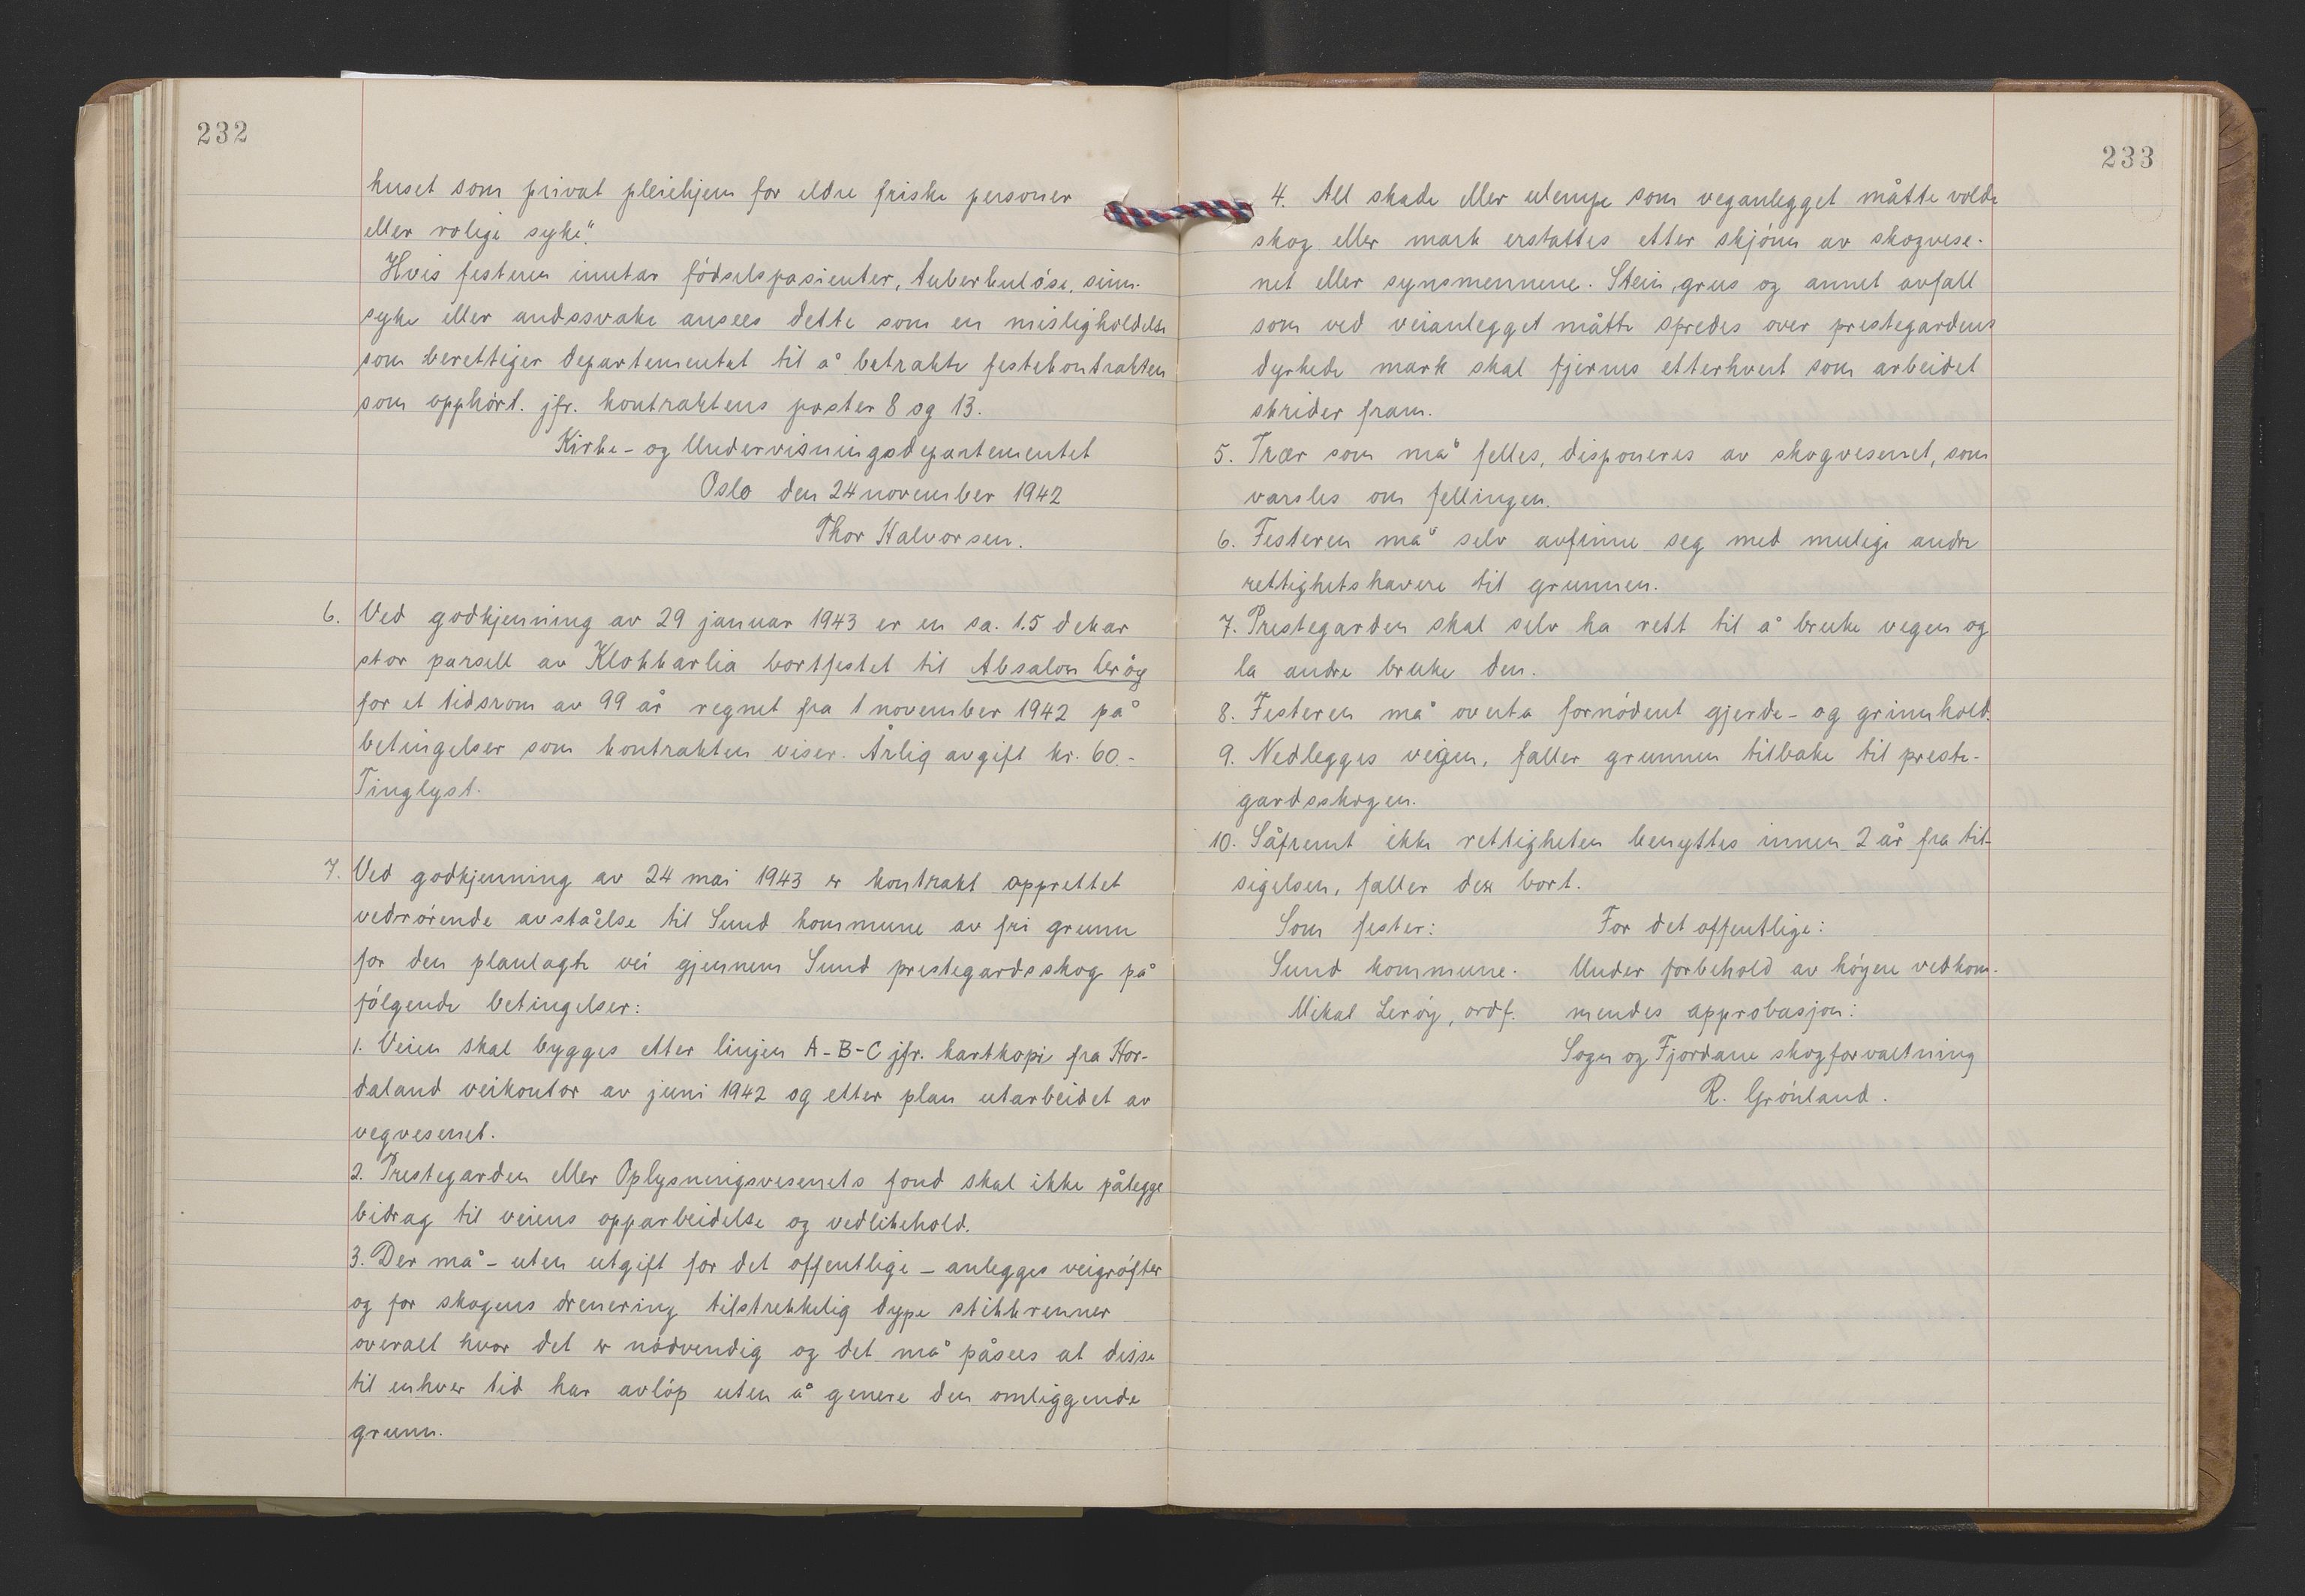 232
huset som privat pleiehjem for eldre friske personer
eller rolige syke".
Hvis festeren inntar födselspasienter, tuberkulöse, sinn-
syke eller andssvake ansees dette som en misligholdelse
som berettiger departementet til å betrakte festekontrakten
som opphört. jfr. kontraktens poster 8 og 13.
Kirke- og Undervisningsdepartementet
Oslo den 24 november 1942
Thor Halvorsen.
6. Ved godkjenning av 29 januar 1943 er en sa. 1.5 dekar
stor parsell av Klokkarlia bortfestet til Absalon Leröy
for et tidsrom av 99 år regnet fra 1 november 1942 på
betingelser som kontrakten viser. Årlig avgift kr. 60.-
Tinglyst.
7. Ved godkjenning av 24 mai 1943 er kontrakt opprettet
vedrörende avståelse til Sund kommune av fri grunn
for den planlagte vei gjennem Sund prestegardsskog på
fölgende betingelser:
1. Veien skal bygges etter linjen A-B-C jfr. kartkopi fra Hor-
daland veikontor av juni 1942 og etter plan utarbeidet av
vegvesenet.
2. Prestegarden eller Oplysningsvesenets fond skal ikke pålegge
bidrag til veiens opparbeidelse og vedlikehold.
3. Der må - uten utgift for det offentlige - anlegges veigröfter
og for skogens drenering tilstrekkelig dype stikkrenner
overalt hvor det er nödvendig og det må påsees at disse
til enhver tid har avlöp uten å genere den omliggende
grunn.
233
4. All skade eller ulempe som veganlegget måtte volde
skog eller mark erstattes etter skjönn av skogvese-
net eller synsmennene. Stein, grus og annet avfall
som ved veianlegget måtte spredes over prestegardens
dyrkede mark skal fjernes etterhvert som arbeidet
skrider fram.
5. Trær som må felles, disponeres av skogvesenet, som
varsles om fellingen.
6. Festeren må selv avfinne seg med mulige andre
rettighetshavere til grunnen.
7. Prestegarden skal selv ha rett til å bruke vegen og
la andre bruke den.
8. Festeren må overta fornödent gjerde- og grinnhold.
9. Nedlegges veigen, faller grunnen tilbake til preste-
gardsskogen.
10. Såfremt ikke rettigheten benyttes innen 2 år fra til-
sigelsen, faller den bort.
Som fester: For det offentlige:
Sund kommune. Under forbehold av höyere vedkom-
Mikal Leröy, ordf. mendes approbasjon:
Sogn og Fjordane skogforvaltning
R. Grönland.